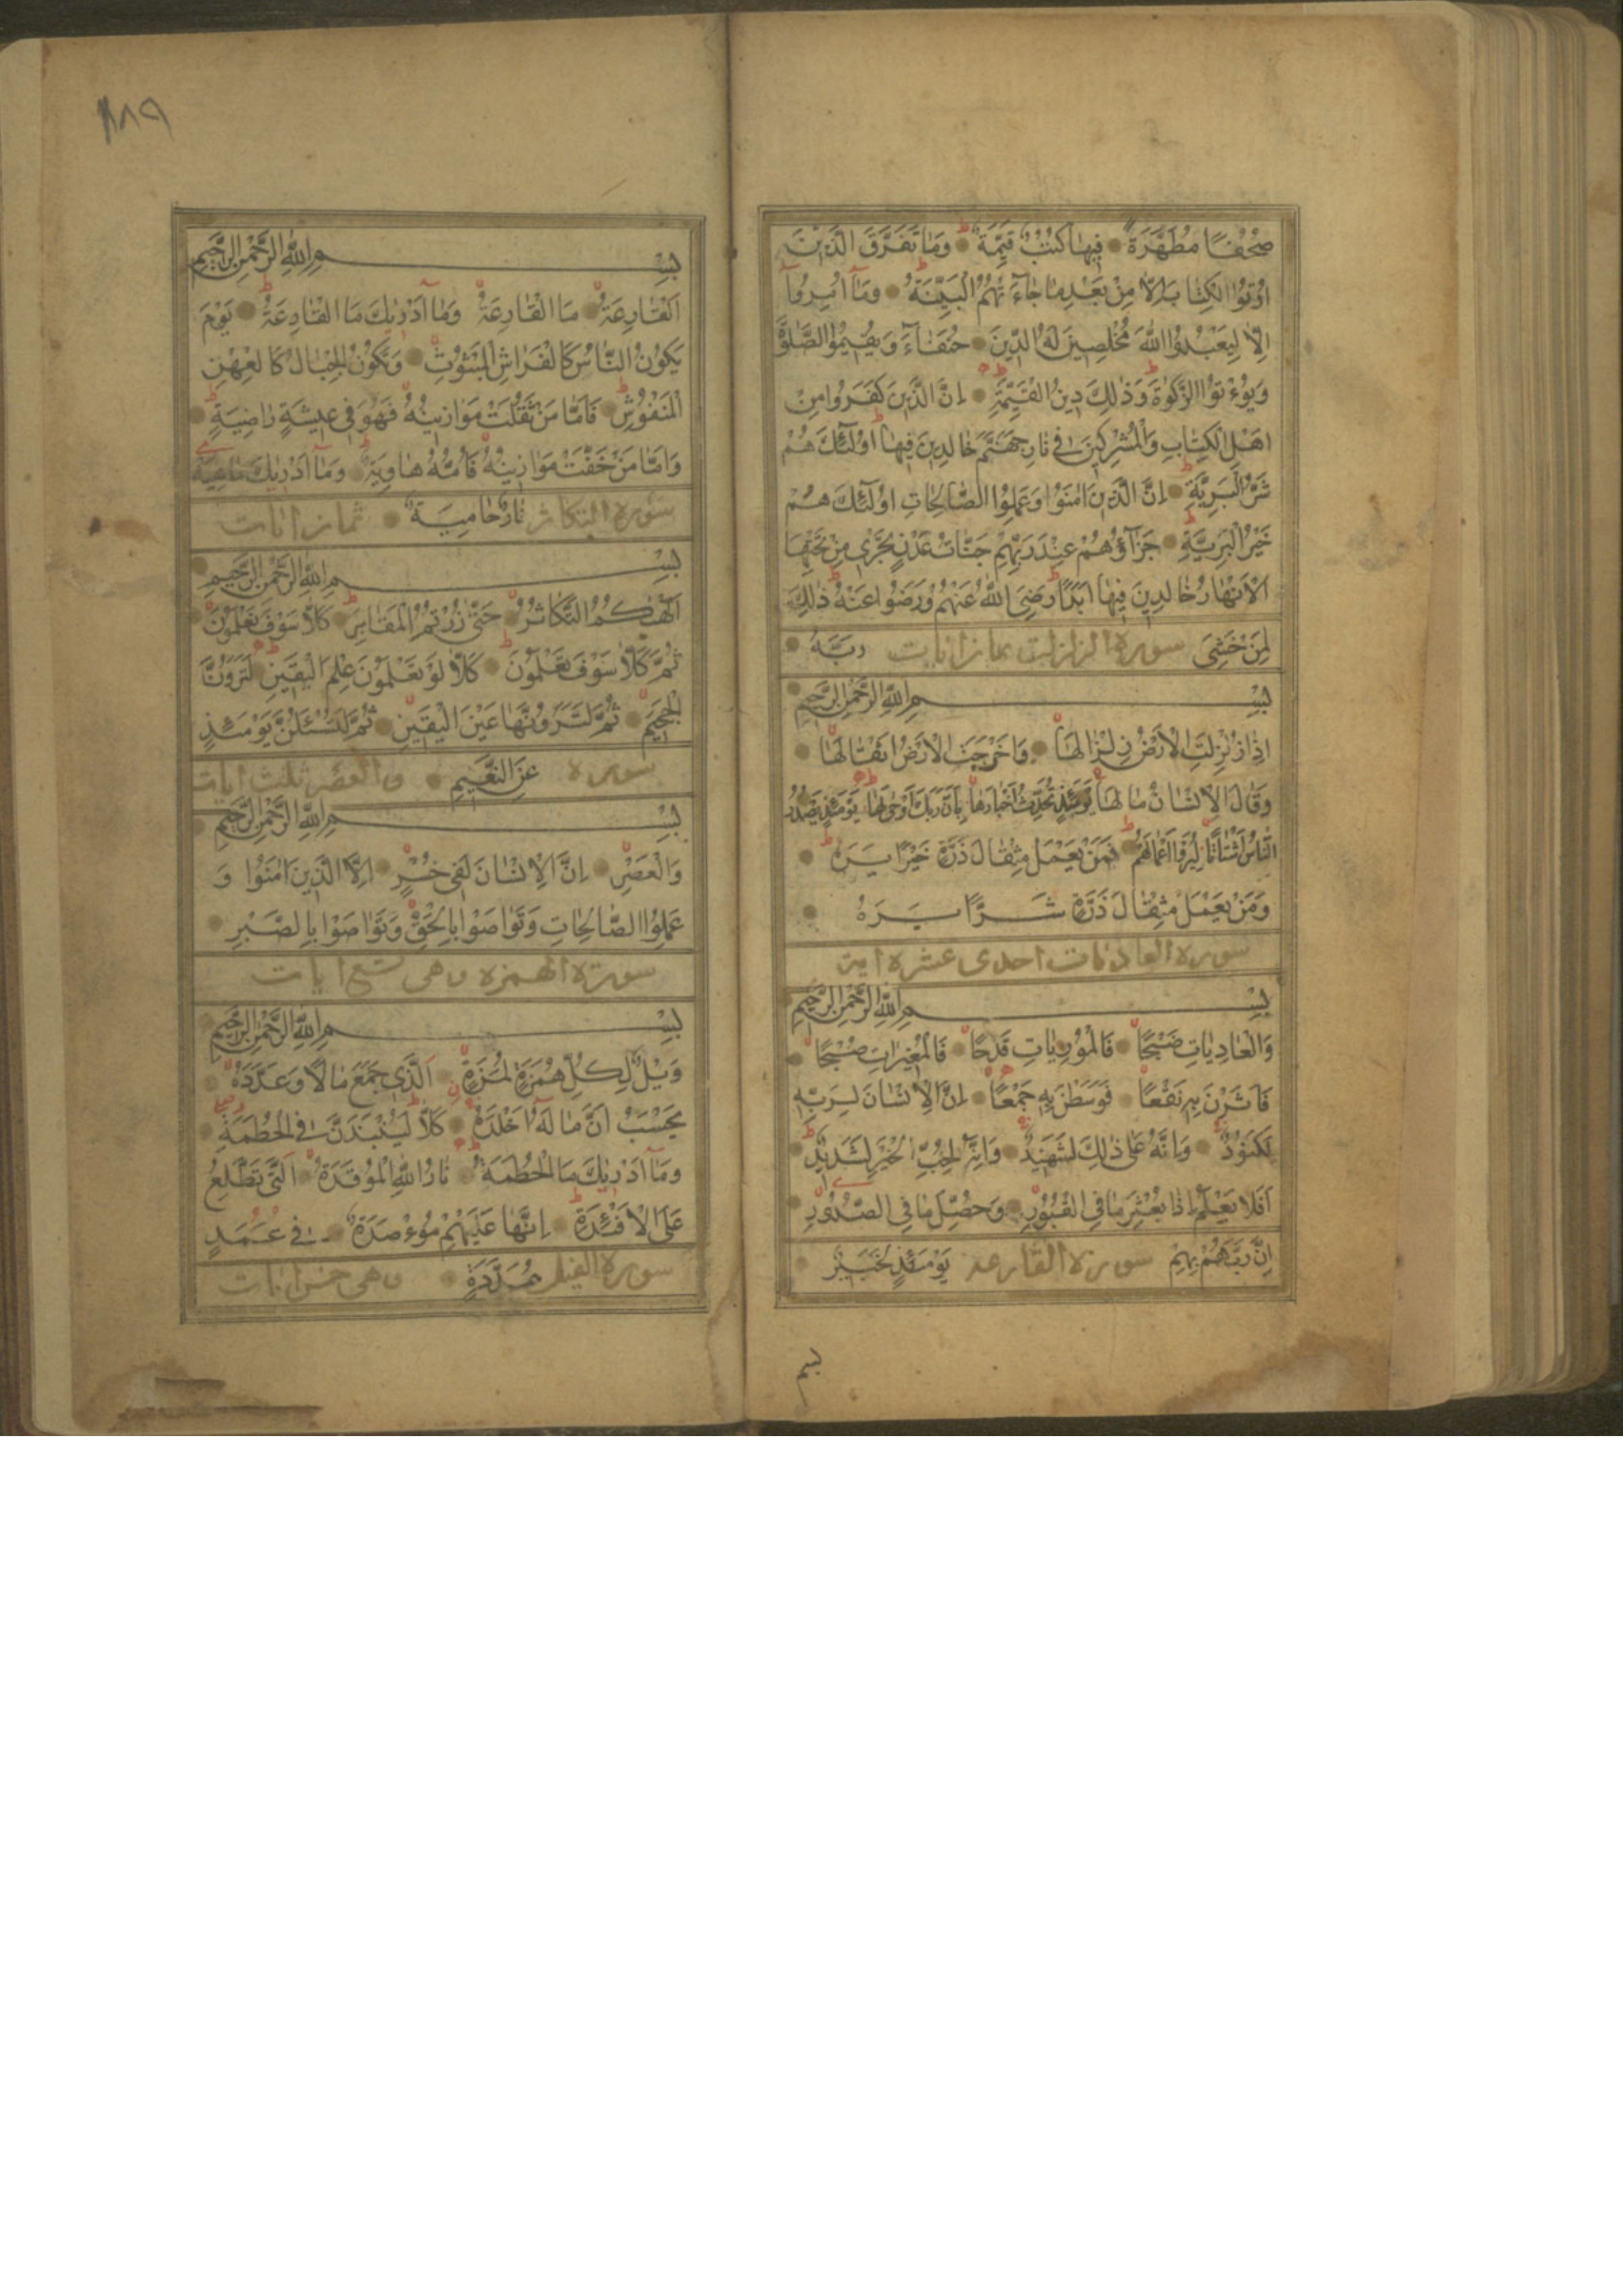 صُحُفًا مُطَهَّرَةً فِيهَا كُتُبٌ قَيِّمَةٌ وَمَا تَفَرَّقَ الَّذِينَ
اُوتُوا الْكِتَابَ اِلَّا مِنْ بَعْدِ مَا جَاءَتْهُمُ الْبَيِّنَةُ وَمَا اُمِرُوا
اِلَّا لِيَعْبُدُوا اللهَ مُخْلِصِينَ لَهُ الدِّينَ حُنَفَاءَ وَيُقِيمُوا الصَّلٰوةَ
وَيُؤْتُوا الزَّكٰوةَ وَذٰلِكَ دِينُ الْقَيِّمَةِ اِنَّ الَّذِينَ كَفَرُوا مِنْ
اَهْلِ الْكِتَابِ وَالْمُشْرِكِينَ فِي نَارِ جَهَنَّمَ خَالِدِينَ فِيهَا اُولٰئِكَ هُمْ
شَرُّ الْبَرِيَّةِ اِنَّ الَّذِينَ اٰمَنُوا وَعَمِلُوا الصَّالِحَاتِ اُولٰئِكَ هُمْ
خَيْرُ الْبَرِيَّةِ جَزَاؤُهُمْ عِنْدَ رَبِّهِمْ جَنَّاتُ عَدْنٍ تَجْرِي مِنْ تَحْتِهَا
الْاَنْهَارُ خَالِدِينَ فِيهَا اَبَدًا رَضِيَ اللهُ عَنْهُمْ وَرَضُوا عَنْهُ ذٰلِكَ
لِمَنْ خَشِيَ سورة الزلزلت ثمان ايات رَبَّهُ
بِسْمِ اللهِ الرَّحْمٰنِ الرَّحِيمِ
اِذَا زُلْزِلَتِ الْاَرْضُ زِلْزَالَهَا وَاَخْرَجَتِ الْاَرْضُ اَثْقَالَهَا
وَقَالَ الْاِنْسَانُ مَا لَهَا يَوْمَئِذٍ تُحَدِّثُ اَخْبَارَهَا بِاَنَّ رَبَّكَ اَوْحٰى لَهَا يَوْمَئِذٍ يَصْدُرُ
النَّاسُ اَشْتَاتًا لِيُرَوْا اَعْمَالَهُمْ فَمَنْ يَعْمَلْ مِثْقَالَ ذَرَّةٍ خَيْرًا يَرَهُ
وَمَنْ يَعْمَلْ مِثْقَالَ ذَرَّةٍ شَرًّا يَرَهُ
سورة العاديات احدى عشرة اية
بِسْمِ اللهِ الرَّحْمٰنِ الرَّحِيمِ
وَالْعَادِيَاتِ ضَبْحًا فَالْمُورِيَاتِ قَدْحًا فَالْمُغِيرَاتِ صُبْحًا
فَاَثَرْنَ بِهِ نَقْعًا فَوَسَطْنَ بِهِ جَمْعًا اِنَّ الْاِنْسَانَ لِرَبِّهِ
لَكَنُودٌ وَاِنَّهُ عَلٰى ذٰلِكَ لَشَهِيدٌ وَاِنَّهُ لِحُبِّ الْخَيْرِ لَشَدِيدٌ
اَفَلَا يَعْلَمُ اِذَا بُعْثِرَ مَا فِي الْقُبُورِ وَحُصِّلَ مَا فِي الصُّدُورِ
اِنَّ رَبَّهُمْ بِهِمْ سورة القارعة يَوْمَئِذٍ لَخَبِيرٌ
بسم
١٨٩
بِسْمِ اللهِ الرَّحْمٰنِ الرَّحِيمِ
اَلْقَارِعَةُ مَا الْقَارِعَةُ وَمَا اَدْرٰيكَ مَا الْقَارِعَةُ يَوْمَ
يَكُونُ النَّاسُ كَالْفَرَاشِ الْمَبْثُوثِ وَتَكُونُ الْجِبَالُ كَالْعِهْنِ
الْمَنْفُوشِ فَاَمَّا مَنْ ثَقُلَتْ مَوَازِينُهُ فَهُوَ فِي عِيشَةٍ رَاضِيَةٍ
وَاَمَّا مَنْ خَفَّتْ مَوَازِينُهُ فَاُمُّهُ هَاوِيَةٌ وَمَا اَدْرٰيكَ مَاهِيَهْ
سورة التكاثر نَارٌ حَامِيَةٌ ثمان ايات
بِسْمِ اللهِ الرَّحْمٰنِ الرَّحِيمِ
اَلْهٰكُمُ التَّكَاثُرُ حَتّٰى زُرْتُمُ الْمَقَابِرَ كَلَّا سَوْفَ تَعْلَمُونَ
ثُمَّ كَلَّا سَوْفَ تَعْلَمُونَ كَلَّا لَوْ تَعْلَمُونَ عِلْمَ الْيَقِينِ لَتَرَوُنَّ
الْجَحِيمَ ثُمَّ لَتَرَوُنَّهَا عَيْنَ الْيَقِينِ ثُمَّ لَتُسْئَلُنَّ يَوْمَئِذٍ
سورة عَنِ النَّعِيمِ والعصر ثلث ايات
بِسْمِ اللهِ الرَّحْمٰنِ الرَّحِيمِ
وَالْعَصْرِ اِنَّ الْاِنْسَانَ لَفِي خُسْرٍ اِلَّا الَّذِينَ اٰمَنُوا وَ
عَمِلُوا الصَّالِحَاتِ وَتَوَاصَوْا بِالْحَقِّ وَتَوَاصَوْا بِالصَّبْرِ
سورة الهمزه وهى تسع ايات
بِسْمِ اللهِ الرَّحْمٰنِ الرَّحِيمِ
وَيْلٌ لِكُلِّ هُمَزَةٍ لُمَزَةٍ اَلَّذِي جَمَعَ مَالًا وَعَدَّدَهُ
يَحْسَبُ اَنَّ مَا لَهُ اَخْلَدَهُ كَلَّا لَيُنْبَذَنَّ فِي الْحُطَمَةِ
وَمَا اَدْرٰيكَ مَا الْحُطَمَةُ نَارُ اللهِ الْمُوقَدَةُ اَلَّتِي تَطَّلِعُ
عَلَى الْاَفْئِدَةِ اِنَّهَا عَلَيْهِمْ مُؤْصَدَةٌ فِي عَمَدٍ
سورة الفيل مُمَدَّدَةٍ وهى خمس ايات